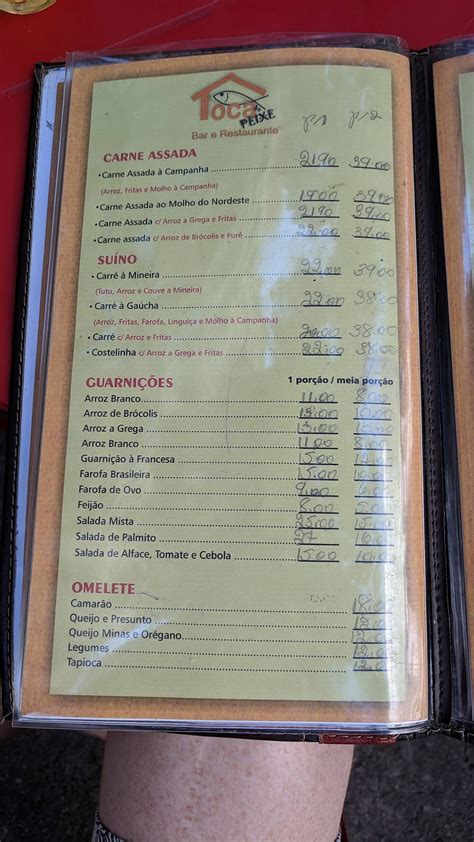 Toca do PEIXE
Bar e Restaurante
p/1 p/2
CARNE ASSADA
• Carne Assada à Campanha 21,90 39,00
(Arroz, Fritas e Molho à Campanha)
• Carne Assada ao Molho do Nordeste 19,00 39,00
• Carne Assada c/ Arroz a Grega e Fritas 21,90 39,00
• Carne assada c/ Arroz de Brócolis e Purê 22,00 39,00
SUÍNO
• Carré à Mineira 22,00 39,00
(Tutu, Arroz e Couve a Mineira)
• Carré à Gaúcha 22,00 38,00
(Arroz, Fritas, Farofa, Linguiça e Molho à Campanha)
• Carré c/ Arroz e Fritas 20,00 38,00
• Costelinha c/ Arroz a Grega e Fritas 22,00 38,00
GUARNIÇÕES 1 porção / meia porção
Arroz Branco 11,00 8,00
Arroz de Brócolis 10,00
Arroz a Grega 15,00 10,00
Arroz Branco 11,00 8,00
Guarnição à Francesa 15,00 12,00
Farofa Brasileira 15,00 10,00
Farofa de Ovo 9,00
Feijão 8,00 5,00
Salada Mista 25,00 15,00
Salada de Palmito 27 16,00
Salada de Alface, Tomate e Cebola 15,00 10,00
OMELETE
Camarão 18,00
Queijo e Presunto 12,00
Queijo Minas e Orégano 12,00
Legumes 12,00
Tapioca 12,00